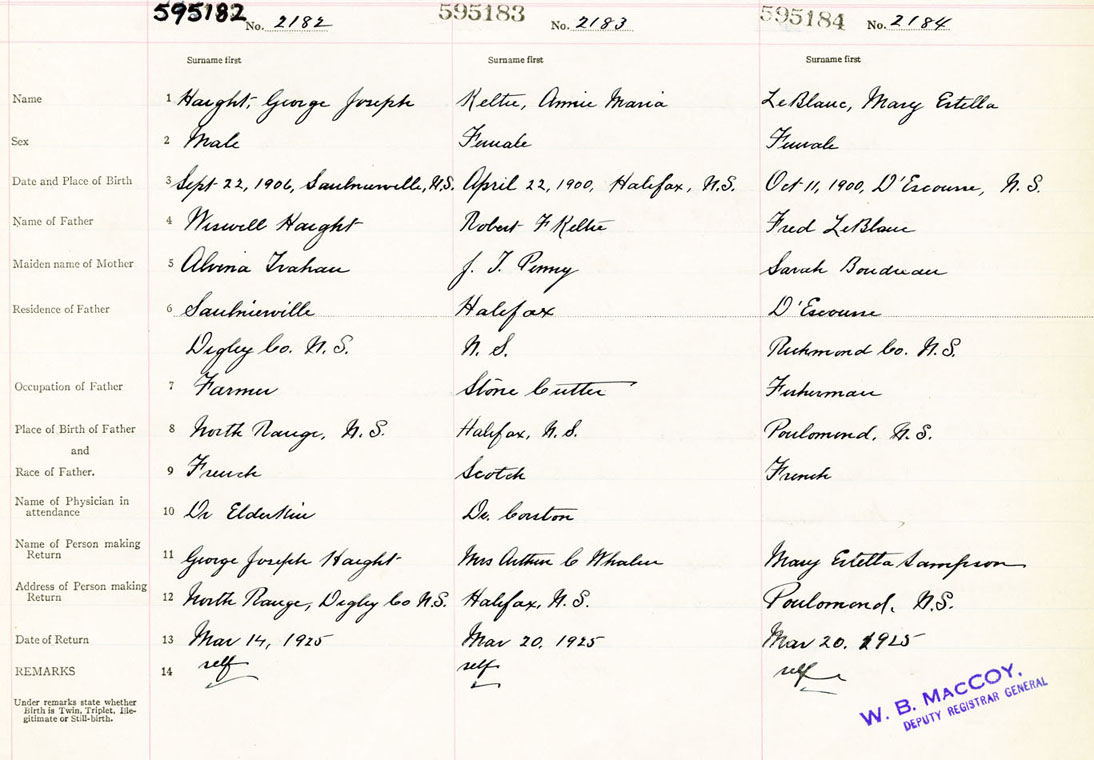 595182 No. 2182 595183 No. 2183 595184 No. 2184
Surname first Surname first Surname first
Name 1 Haight, George Joseph Keltie, Annie Maria LeBlanc, Mary Estella
Sex 2 Male Female Female
Date and Place of Birth 3 Sept 22, 1906, Saulnierville, N.S. April 22, 1900, Halifax, N.S. Oct 11, 1900, D'Escousse, N.S.
Name of Father 4 Wiswell Haight Robert F Keltie Fred LeBlanc
Maiden name of Mother 5 Alvina J. T. Penny Sarah Boudreau
Residence of Father 6 Saulnierville Halifax D'Escousse
Digby Co. N.S. N.S. Richmond Co. N.S.
Occupation of Father 7 Farmer Stone Cutter Fisherman
Place of Birth of Father 8 North Range, N.S. Halifax, N.S. Poulomond, N.S.
and
Race of Father. 9 French Scotch French
Name of Physician in
attendance 10 Dr Elderkin Dr. Corston
Name of Person making
Return 11 George Joseph Haight Mrs Arthur C Whalen Mary Estella Sampson
Address of Person making
Return 12 North Range, Digby Co N.S. Halifax, N.S. Poulomond, N.S.
Date of Return 13 Mar 14, 1925 Mar 20, 1925 Mar 20, 1925
REMARKS 14 self self self
Under remarks state whether
Birth is Twin, Triplet, Ille-
gitimate or Still-birth.
W. B. MACCOY,
DEPUTY REGISTRAR GENERAL